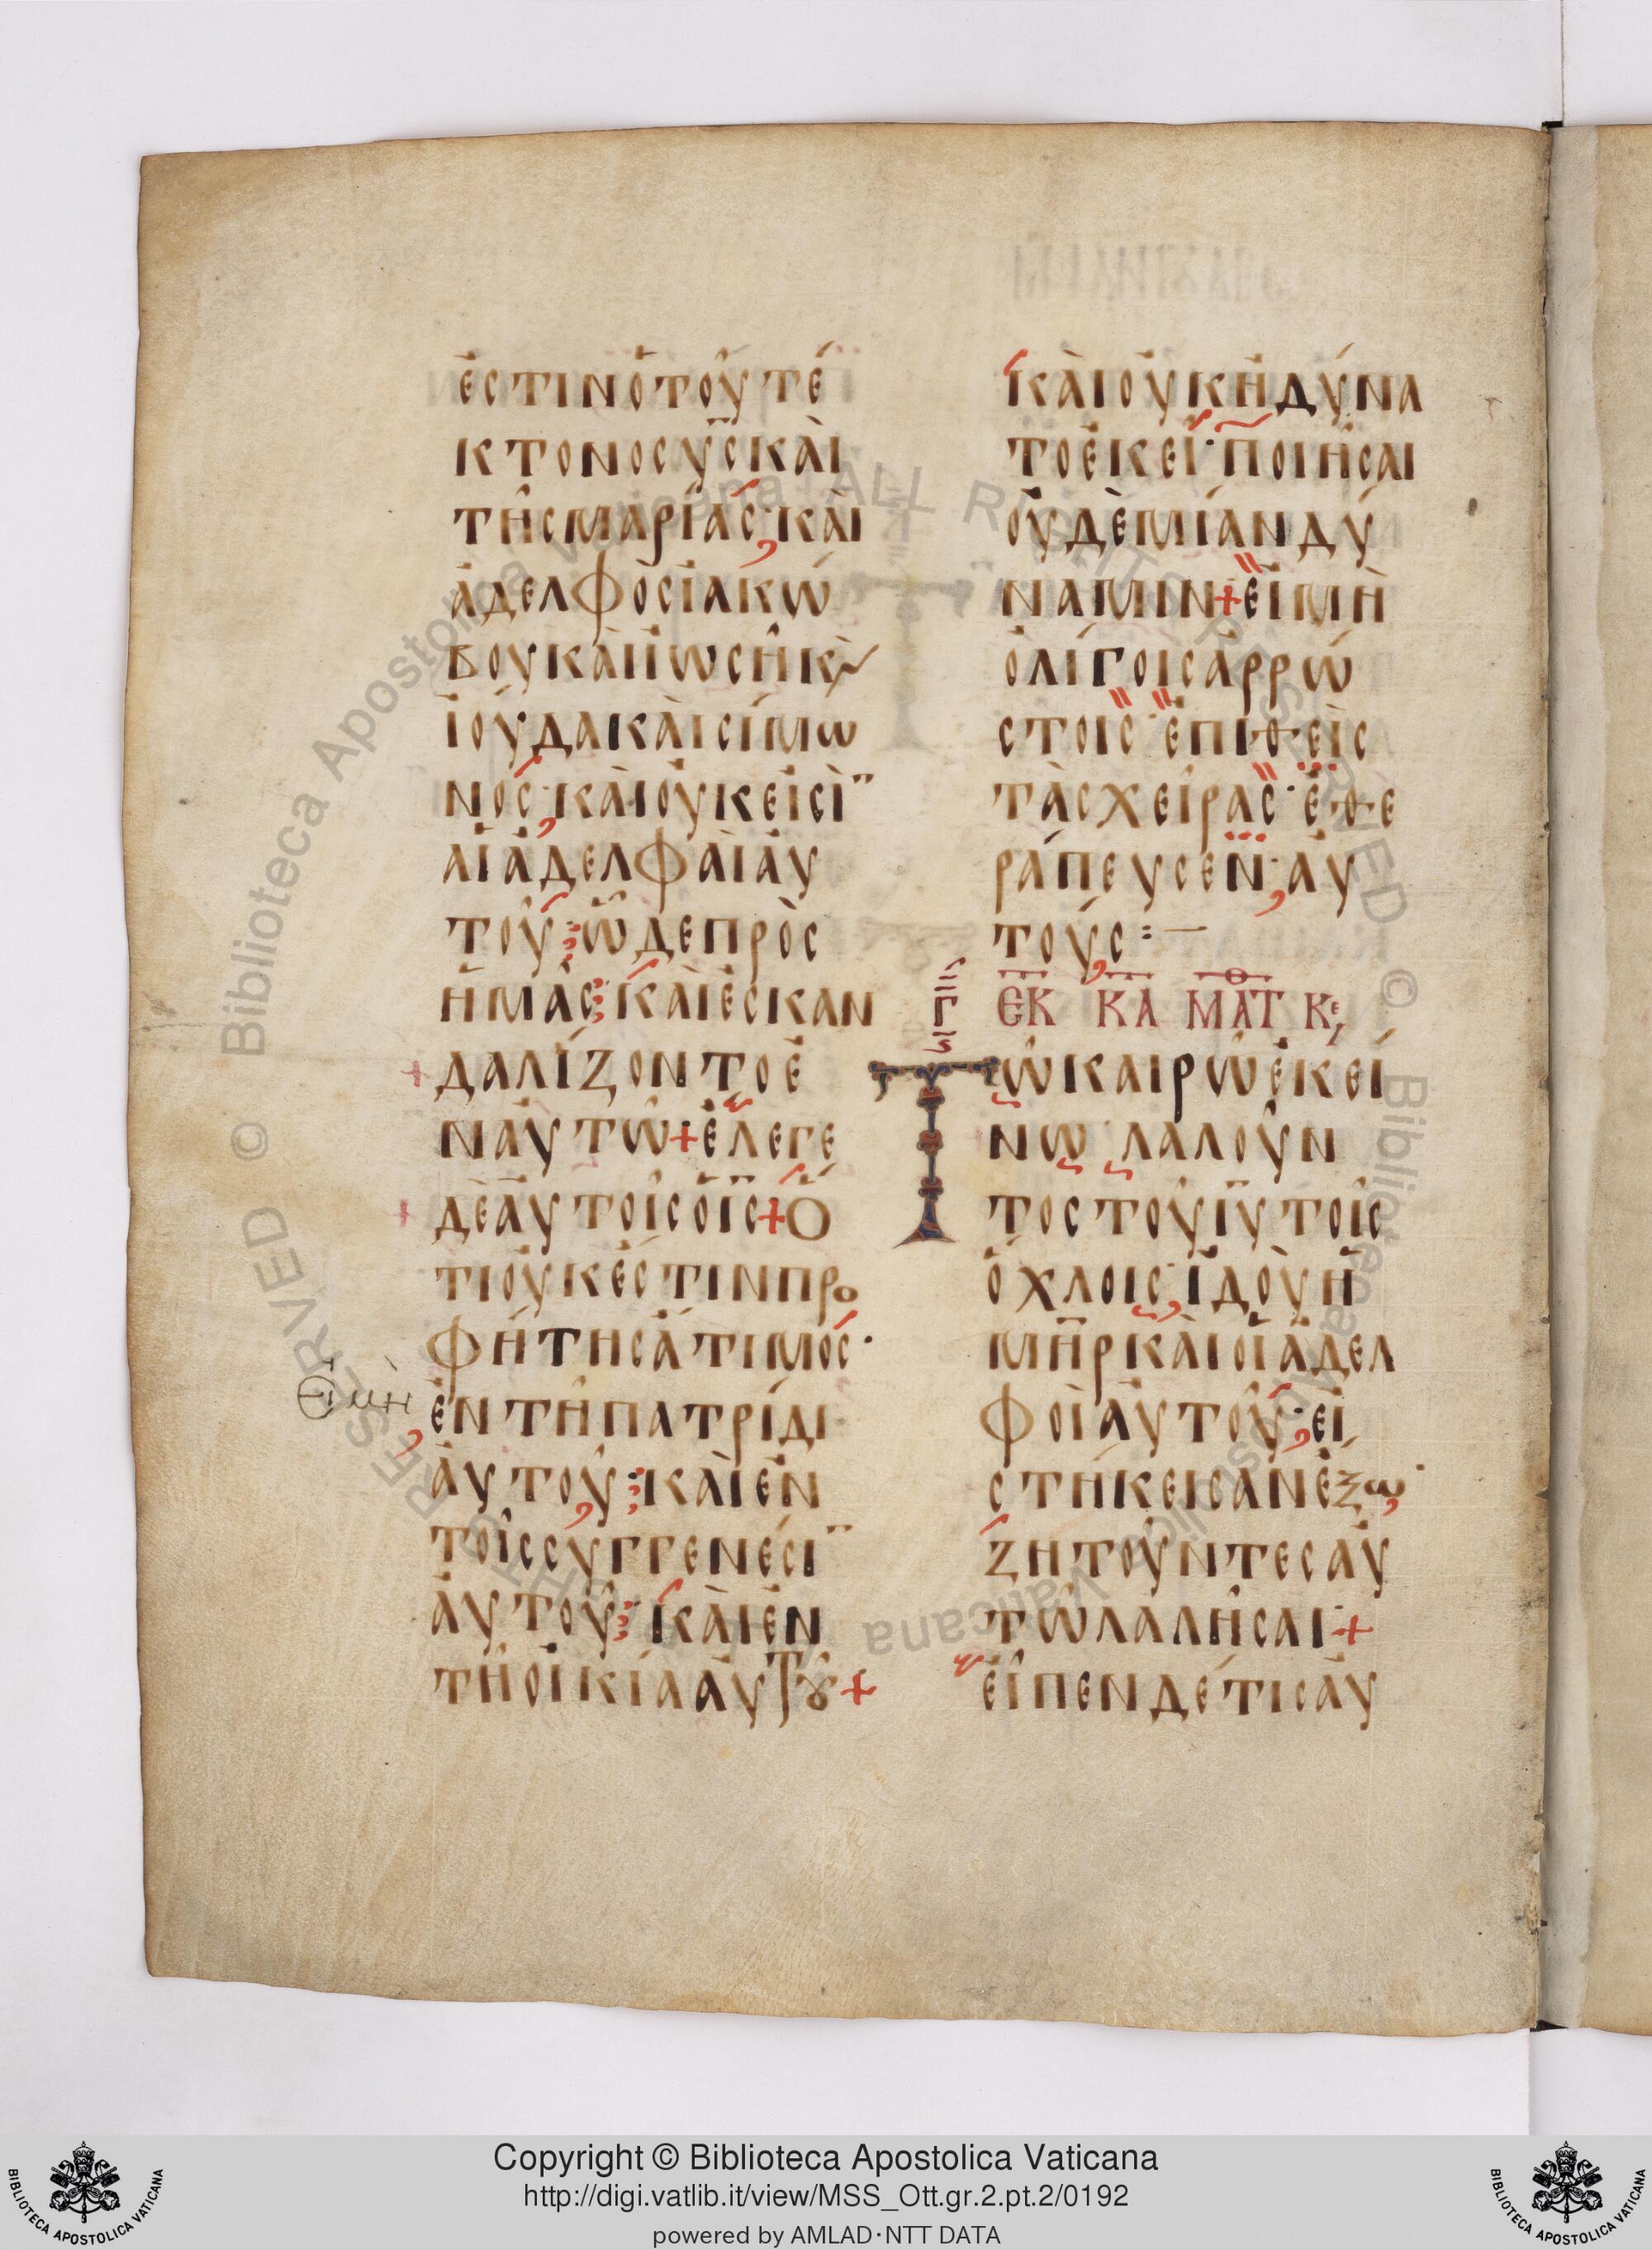 ἐστινὁτοῦτέ
κτονοσυ̅ς̅καὶ
τῆσμαρίας·καὶ
ἀδελφὸσϊακώ
βουκαὶϊωσῆκ̀
ϊούδακαὶσίμω
νος·καὶοὐκεἰσὶ
αἱἀδελφαὶαὐ
τοῦ·ὧδεπρὸσ
ἡμᾶς·καὶἐσκαν
δαλίζοντοἐ
ναὐτῶ+ἔλεγε
δὲαὐτοῖσὁι̅ς̅+ὅ
τιοὐκἔστινπρο
φήτησἄτιμος·
ἐντῆπατρίδι
αὐτοῦ·καὶἐν
τοῖσσυγγενέσι
αὐτοῦ·καὶἐν
τῆοἰκίααὐτȣ͂+
καὶοὐκἠδύνα
τοἐκεῖ·ποιῆσαι
οὐδὲμίανδύ
ναμιν+εἰμὴ
ὀλίγοισἀρρώ
στοις·ἐπιθεὶσ
τὰσχεῖρας·ἐθε
ράπευσεν·αὐ
τούς:—
Γ
ΕΚ ΚΑ ΜΑΤ Κε,
Τῶκαιρῶἐκεί
νω·λαλοῦν
τοστοῦι̅υ̅τοῖσ
ὄχλοις·ϊδοὺἡ
μ̅η̅ρ̅καὶοἱἀδελ
φοὶαὐτοῦ·εἱ
στήκεισανἔξω·
ζητοῦντεσαὐ
τῶλαλῆσαι·+
εἶπενδέτισαὐ
Copyright © Biblioteca Apostolica Vaticana
http://digi.vatlib.it/view/MSS_Ott.gr.2.pt.2/0192
powered by AMLAD·NTT DATA
BIBLIOTECA APOSTOLICA VATICANA
BIBLIOTECA APOSTOLICA VATICANA